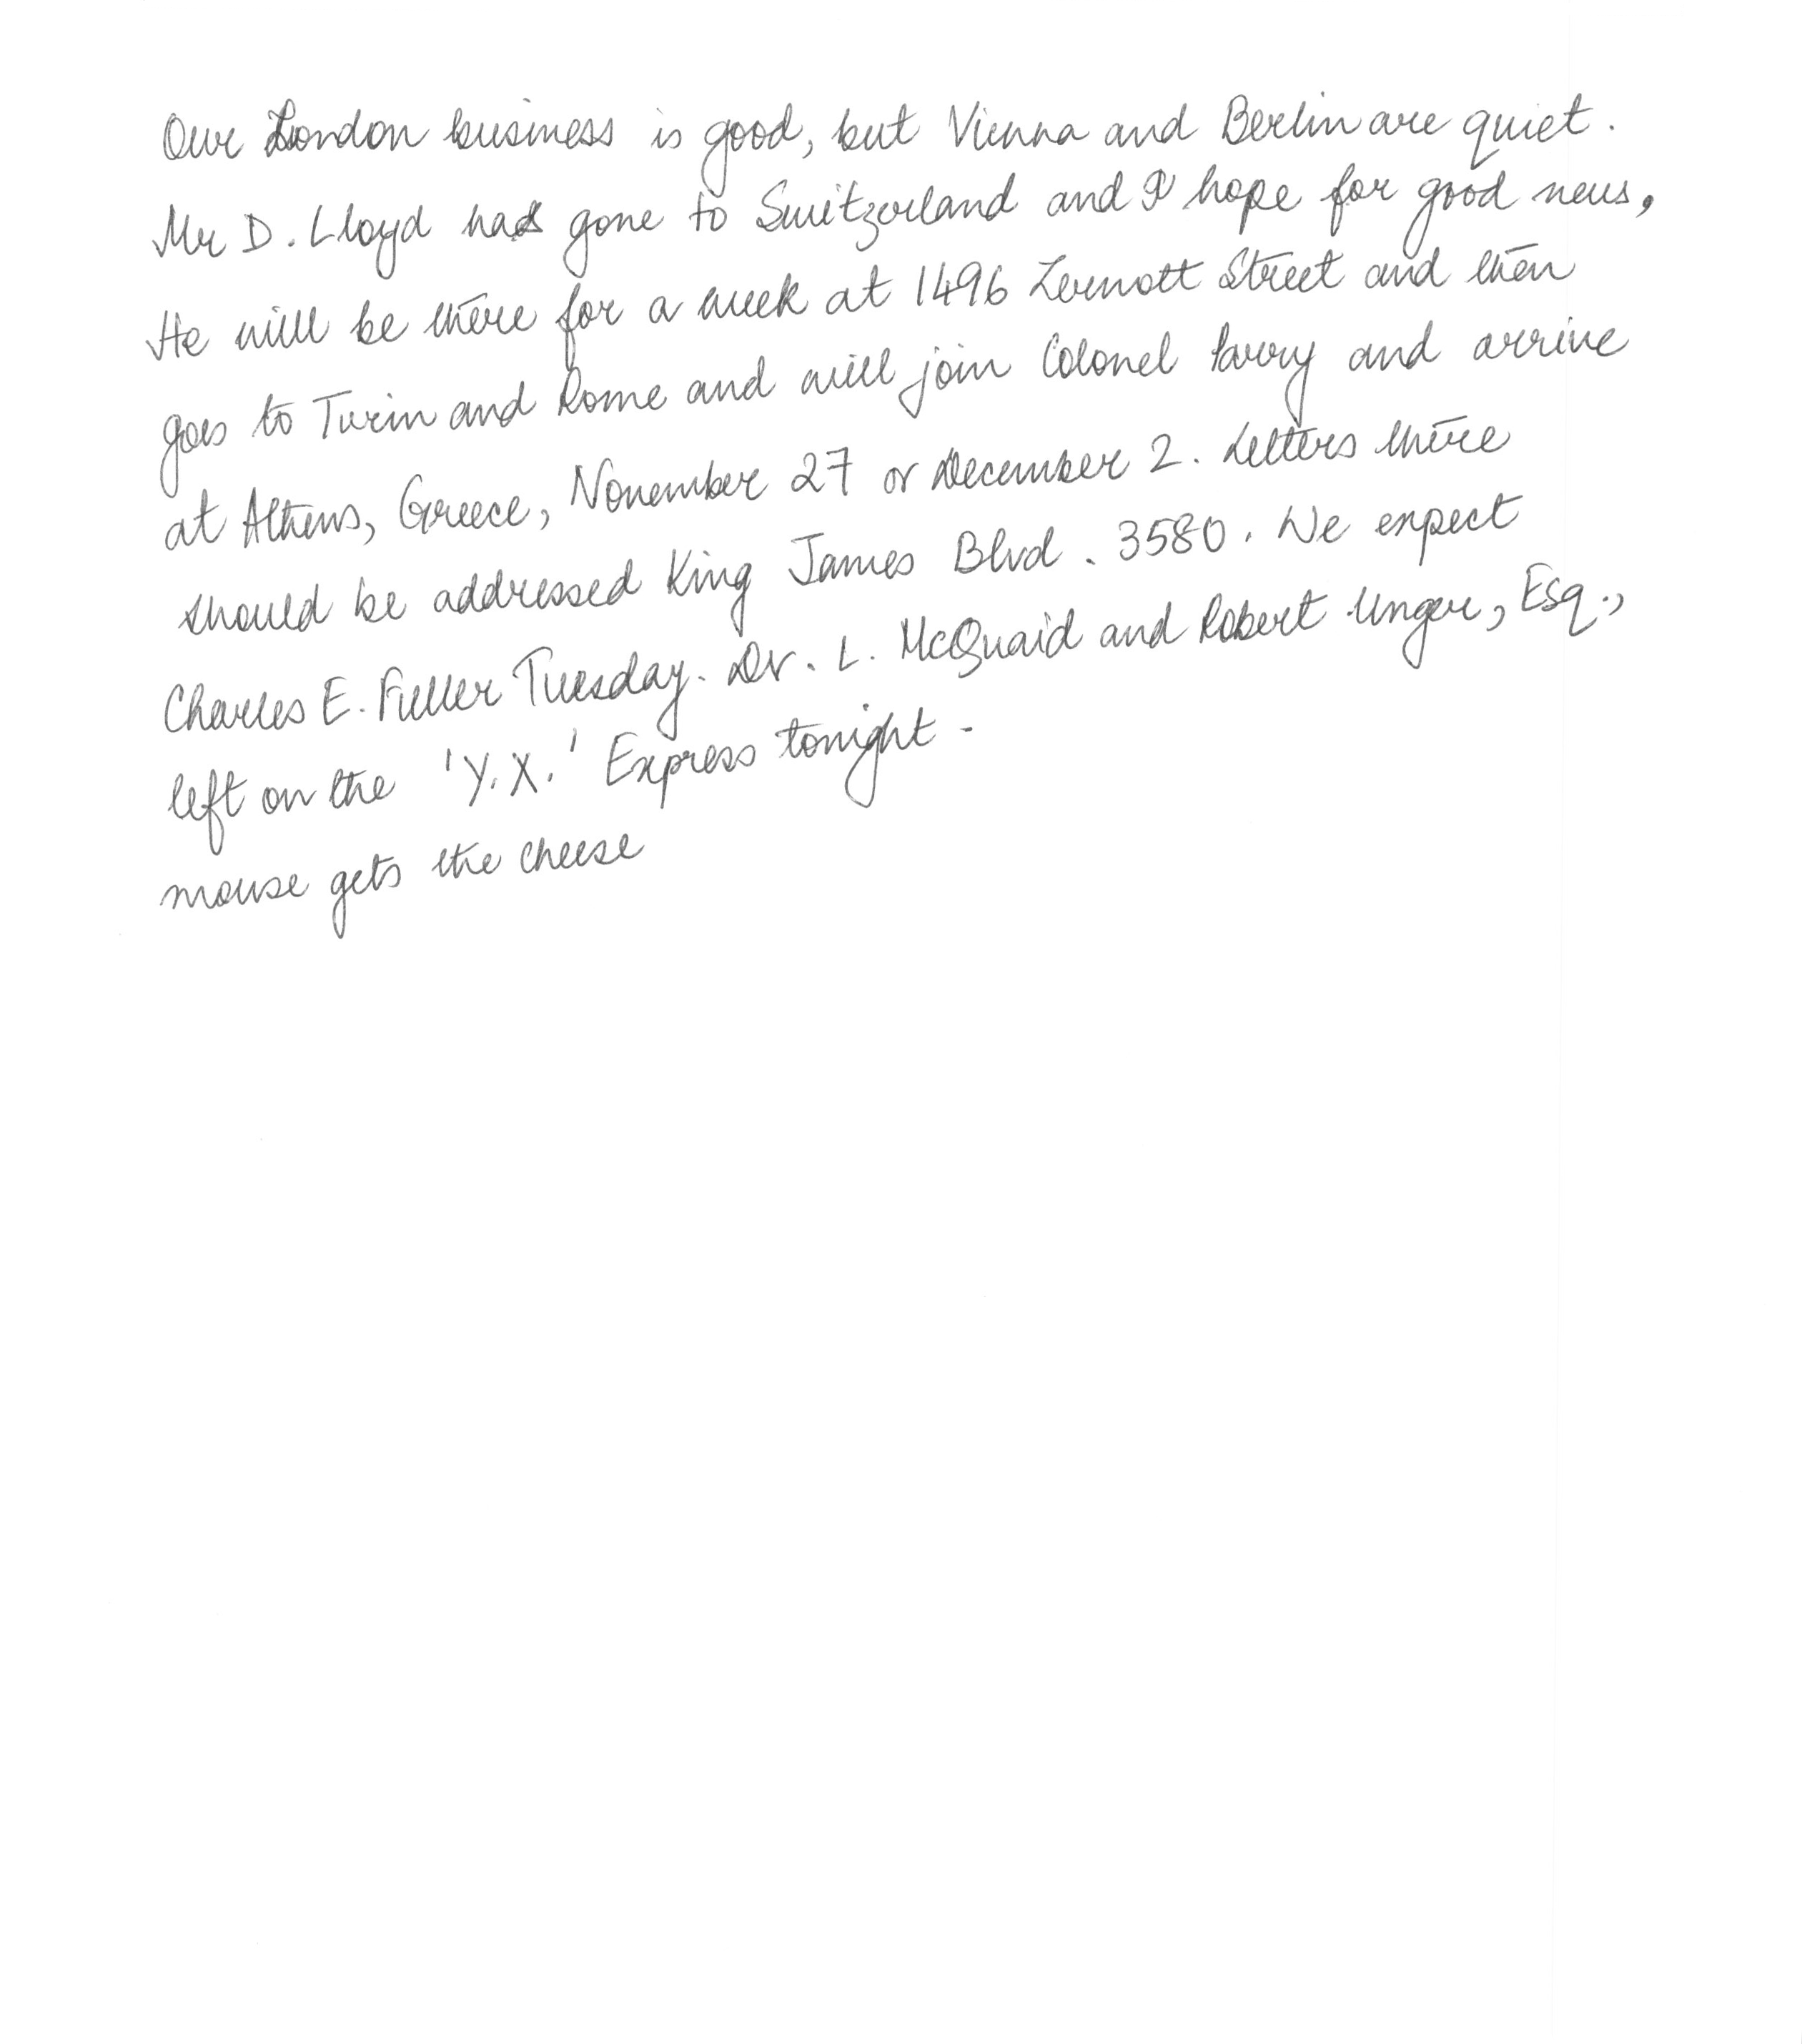 Our London business is good, but Vienna and Berlin are quiet.
Mr D. Lloyd has gone to Switzerland and I hope for good news,
He will be there for a week at 1496 Zermott Street and then
goes to Turin and Rome and will join Colonel Parry and arrive
at Athens, Greece, November 27 or December 2. Letters there
should be addressed King James Blvd. 3580. We expect
Charles E. Fuller Tuesday. Dr. L. McQuaid and Robert Unger, Esq.,
left on the 'Y.X.' Express tonight -
mouse gets the cheese